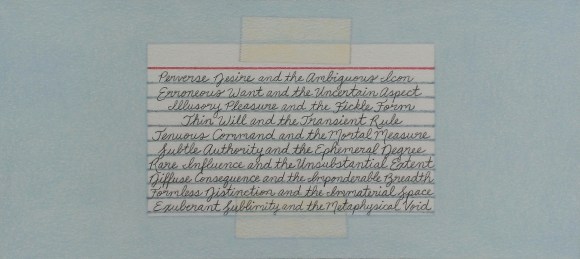 Perverse Desire and the Ambiguous Icon
Erroneous Want and the Uncertain Aspect
Illusory Pleasure and the Fickle Form
Thin Will and the Transient Rule
Tenuous Command and the Mortal Measure
Subtle Authority and the Ephemeral Degree
Rare Influence and the Unsubstantial Extent
Diffuse Consequence and the Imponderable Breadth
Formless Distinction and the Immaterial Space
Exuberant Sublimity and the Metaphysical Void